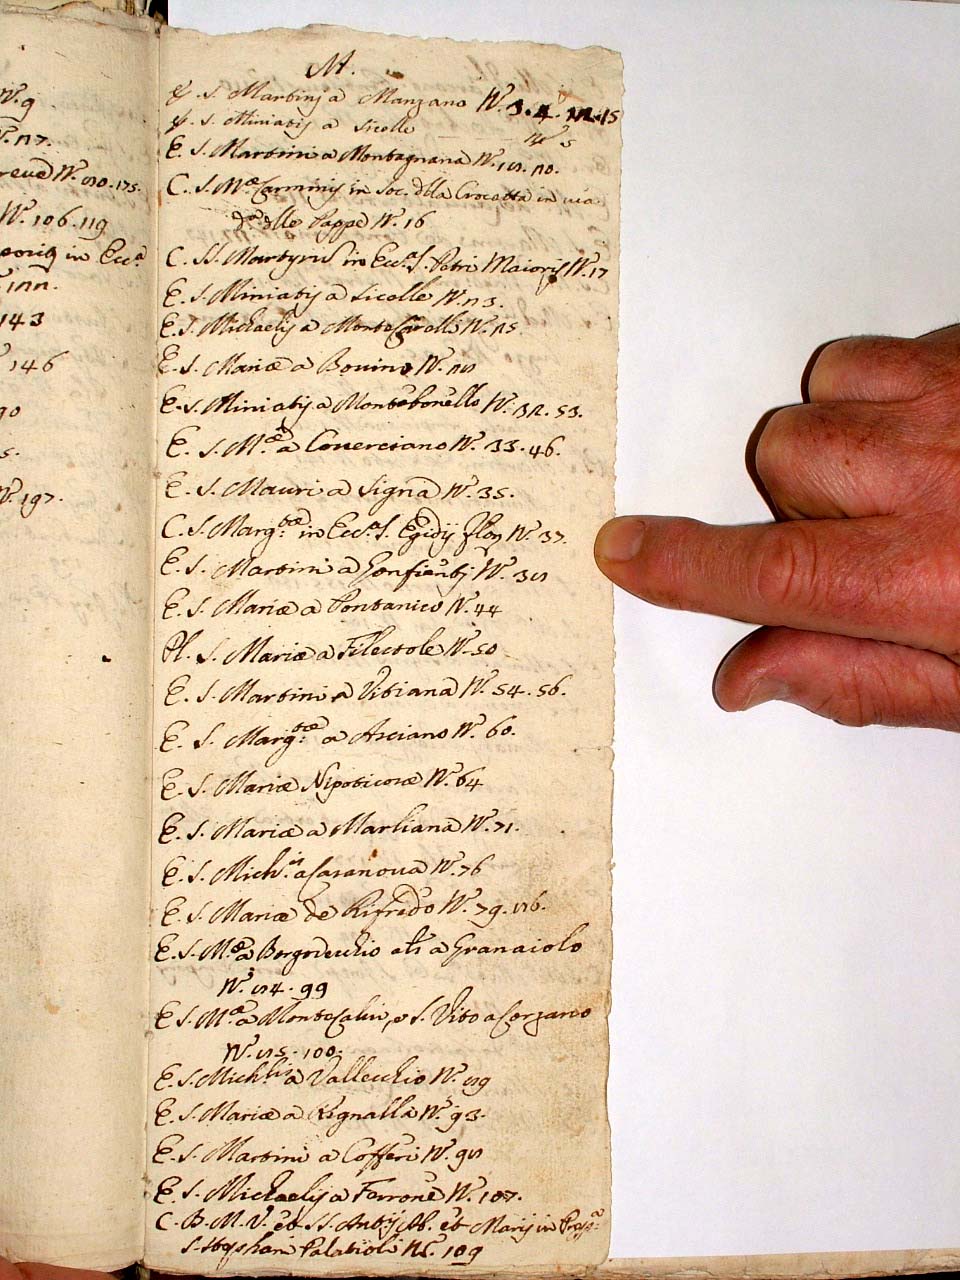 N.º 9
N.º 27.
N.º 80. 175.
N.º 106. 119
in Ecc.ª
122.
143
146
90
N.º 197.
M.
E. S. Martinj a Manzano N.º 3. 4. 12. 15
E. S. Miniatij a Sicelle
E. S. Martini a Montagnana N.º 18. 20.
C. S. M.æ Carminis in Soc. della Crocetta in via
d.ª delle Pappe N.º 16
C. SS. Martyris in Ecc.ª S. Petri Maioris N.º 17
E. S. Miniatij a Sicelle N.º 23.
E. S. Michaelis a Monte Carelli N.º 25.
E. S. Mariæ a Bovino N.º 28
E. S. Miniatij a Montebonello N.º 32. 53.
E. S. M.æ a Coverciano N.º 33. 46.
E. S. Mauri a Signa N.º 35.
C. S. Marg.tæ in Ecc.ª S. Egidij N.º 37.
E. S. Martini a Gonfientj N.º 38
E. S. Mariæ a Pontanico N.º 44
Pl. S. Mariæ a Filectole N.º 50
E. S. Martini a Vibiana N.º 54. 56.
E. S. Marg.tæ a Asciano N.º 60.
E. S. Mariæ Nipoticosæ N.º 64
E. S. Mariæ a Marliana N.º 71.
E. S. Mich.is a Casanova N.º 76
E. S. Mariæ de Rifredo N.º 79. 86.
E. S. M.æ a Borgovecchio als a Granaiolo
N.º 84. 99
E. S. M.æ a Monte Calvi, e S. Vito a
N.º 85. 100.
E. S. Mich.lis a Vallecchio N.º 89
E. S. Mariæ a Rignalla N.º 93.
E. S. Martini a Cofferi N.º 98
E. S. Michaelis a Ferrone N.º 107.
C. B. M. V. et SS. Antij Ab. et Marij in
S. Stephani Palatioli N.º 109